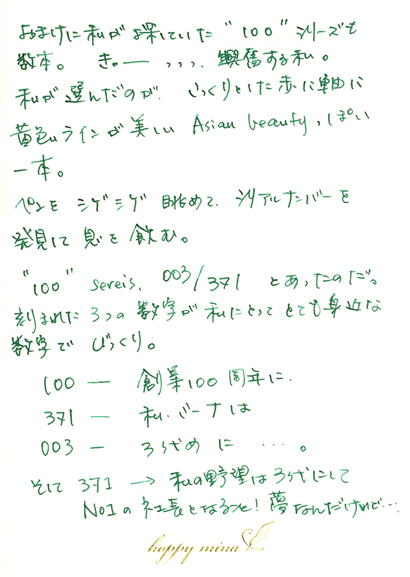 おまけに私が探していた"100"シリーズも
数本。きゃーっっっ、興奮する私。
私が選んだのが、しっくりとした赤い軸に
黄色いラインが美しい Asian beautyっぽい
一本。
ペンを シゲシゲ 眺めて、シリアルナンバーを
発見して 息を飲む。
"100" sereis, 003/371 とあったのだ。
刻まれた 3つの数字が 私にとって とても身近な
数字で びっくり。
100 ― 創業100周年に、
371 ― 私・ミーナは
003 ― 3代めに …。
そして 371 → 私の野望は3代にして
No1の社長となること!夢なんだけれど…
happy mina